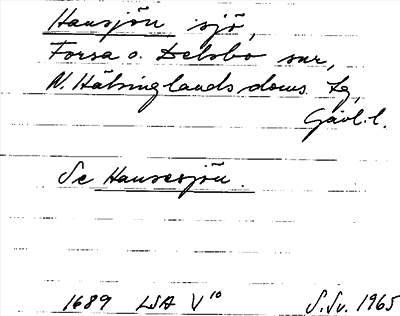 Hansjön sjö,
Forsa o. Delsbo snr,
N. Hälsinglands doms. tg,
Gävl. l.
Se Hansesjön.
1689 LSA V 10 S.Sv. 1965